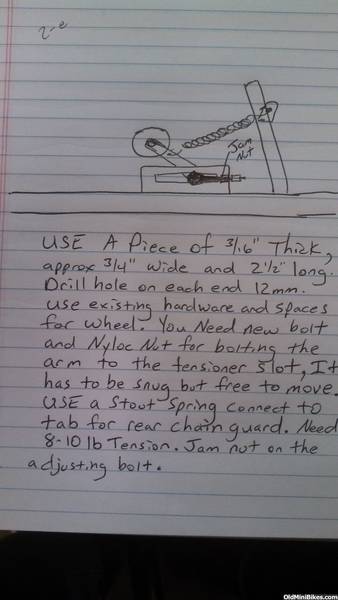 Jam
Nut
USE A Piece of 3/16" Thick,
approx 3/4" wide and 2 1/2" long.
Drill hole on each end 12mm.
Use existing hardware and spaces
for wheel. You Need new bolt
and Nyloc Nut for bolting the
arm to the tensioner slot, It
has to be snug but free to move.
USE a stout spring connect to
tab for rear chain guard. Need
8-10 lb Tension. Jam nut on the
adjusting bolt.
OldMiniBikes.com